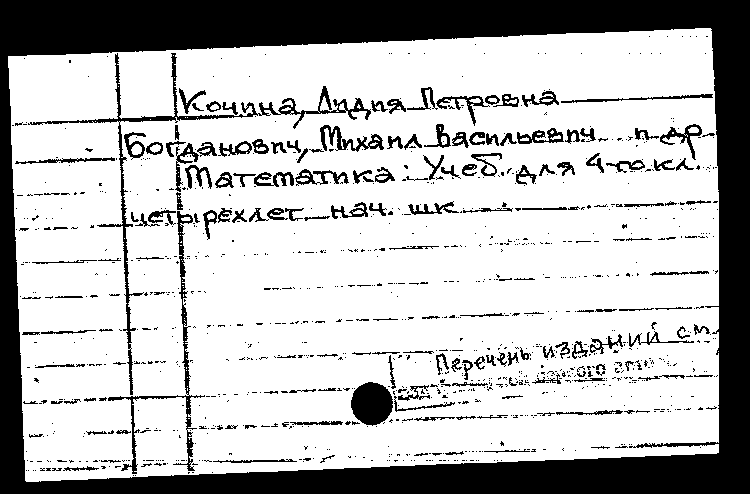 Кочина, Лидия Петровна
Богданович, Михаил Васильевич и др
Математика: Учеб. для 4-го кл.
четырехлет. нач. шк
Перечень изданий см
первого